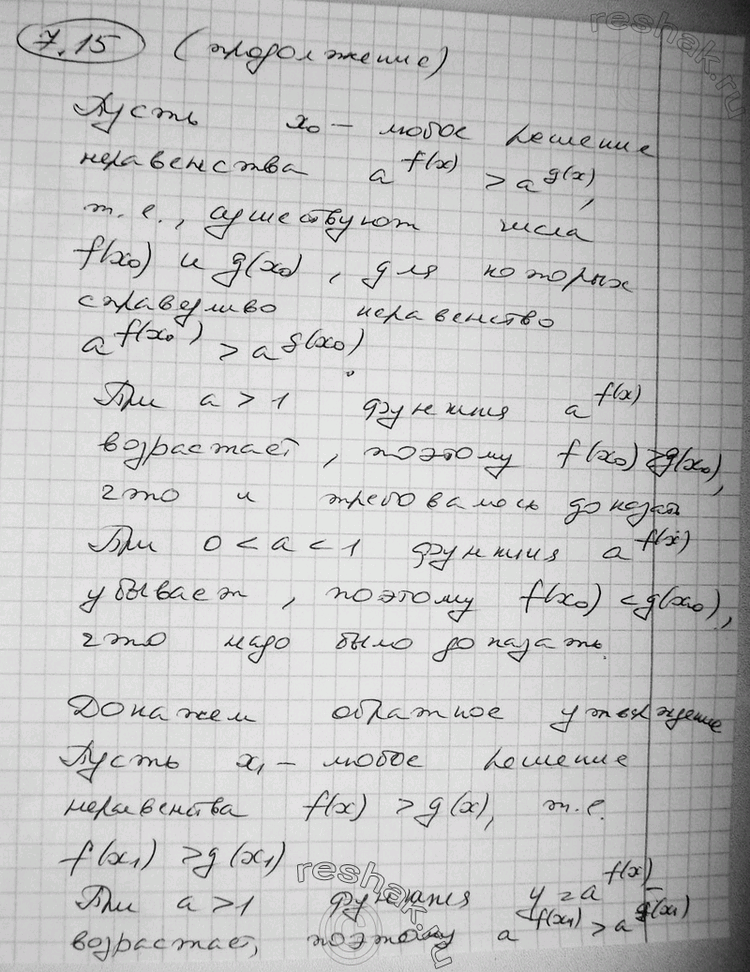 7.15 (продолжение)
Пусть x₀ – любое решение
неравенства a^f(x) > a^g(x),
т.е., существуют числа
f(x₀) и g(x₀), для которых
справедливо неравенство
a^f(x₀) > a^g(x₀).
При a > 1 функция a^f(x)
возрастает, поэтому f(x₀) > g(x₀),
что и требовалось доказать
При 0 < a < 1 функция a^f(x)
убывает, поэтому f(x₀) < g(x₀),
что надо было доказать.
Докажем обратное утверждение
Пусть x₁ – любое решение
неравенства f(x) > g(x), т.е.
f(x₁) > g(x₁)
При a > 1 функция y = a^f(x) –
возрастает, поэтому a^f(x₁) > a^g(x₁)
reshak.ru
reshak.ru